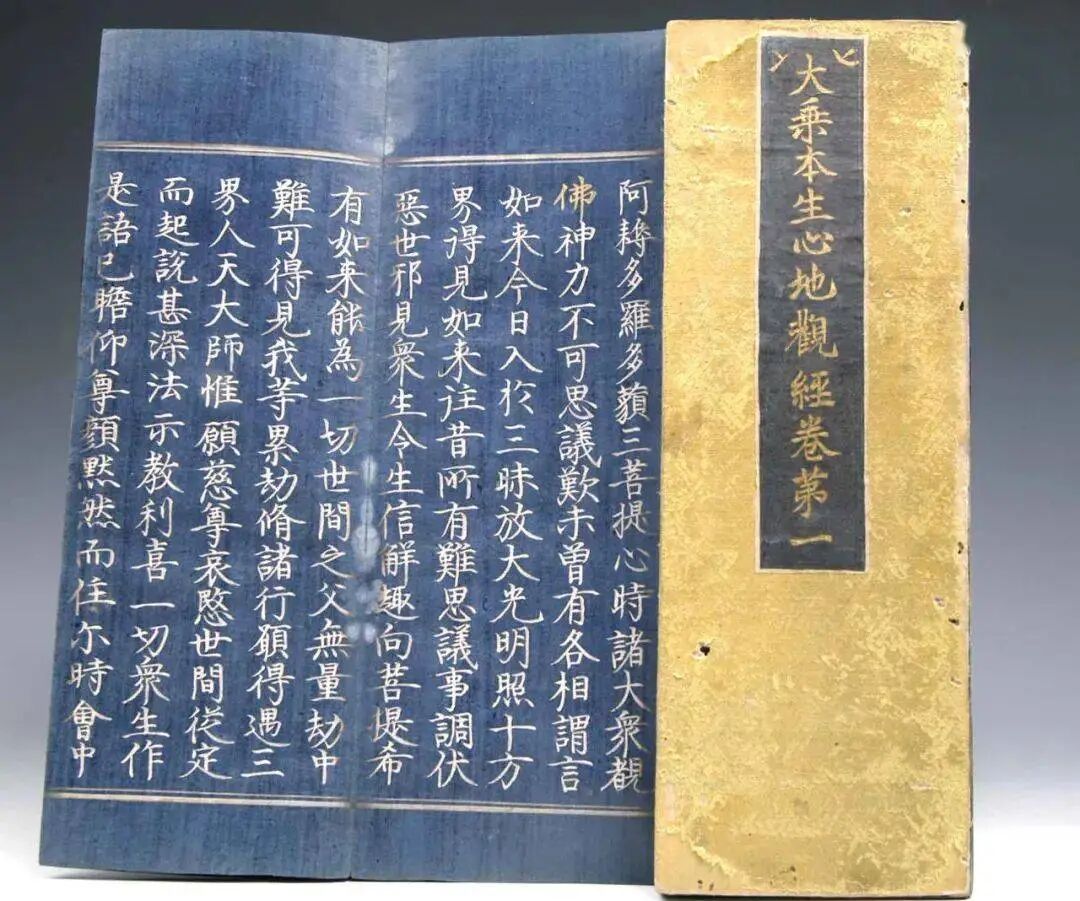 大乗本生心地觀經卷第一
阿耨多羅多藐三菩提心時諸大衆覩
佛神力不可思議歎未曾有各相謂言
如来今日入於三昧放大光明照十方
界得見如来往昔所有難思議事調伏
惡世邪見衆生令生信解趣向菩提希
有如来能為一切世間之父無量劫中
難可得見我等累劫脩諸行願得遇三
界人天大師惟願慈尊哀愍世間從定
而起說甚深法示教利喜一切衆生作
是語已瞻仰尊顏默然而住尔時會中